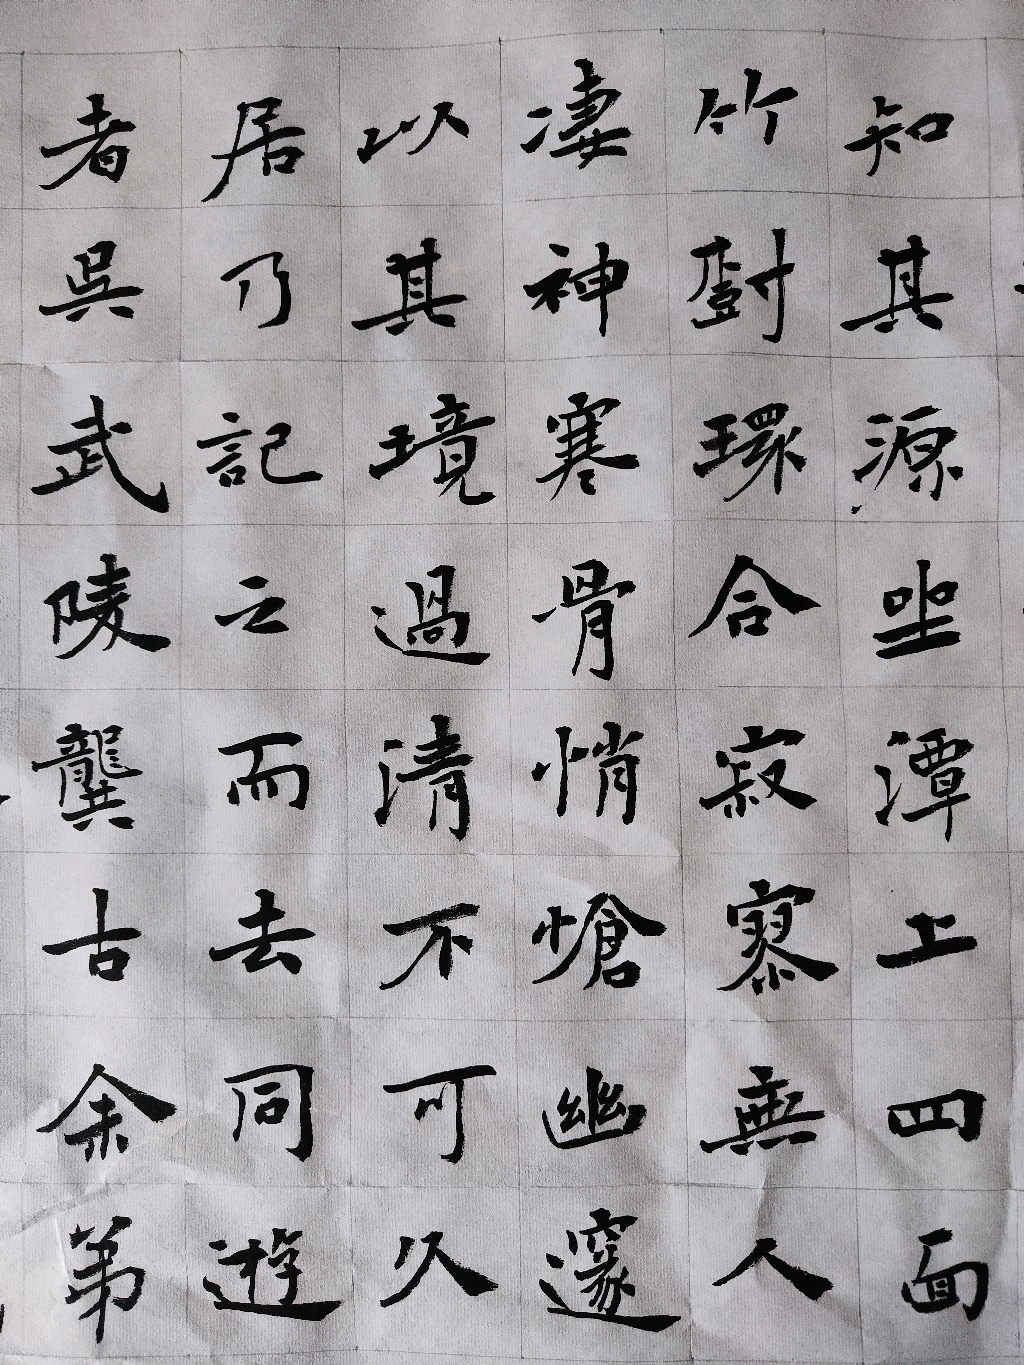 知其源坐潭上四面
竹對環合寂寥無人
凄神寒骨悄愴幽邃
以其境過清不可久
居乃記之而去同遊
者吳武陵龔古余弟